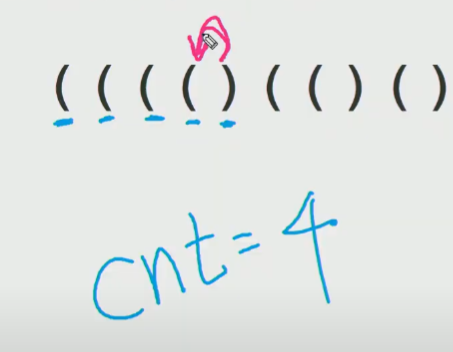 ( ( ( ( ) ( ( ) ( )
cnt = 4